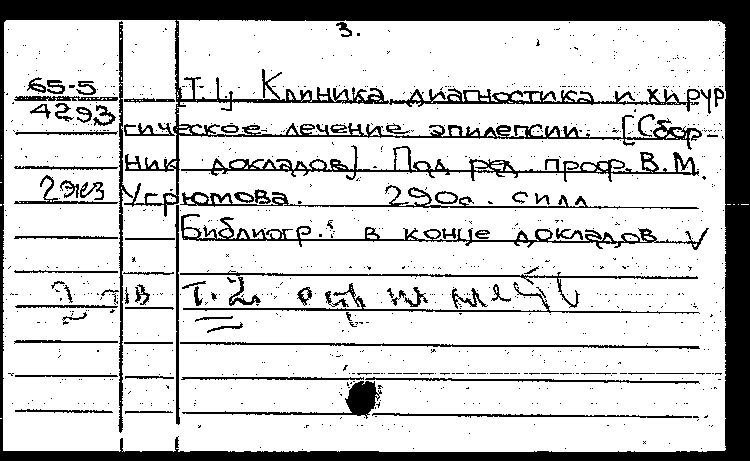 3.
65-5 [Т. 1] Клиника, диагностика и хирур
4293 гическое лечение эпилепсии. [Сбор-
ник докладов]. Под ред. проф. В. М.
2 экз Угрюмова. 290с. с илл
Библиогр.: в конце докладов V
Т. 2.